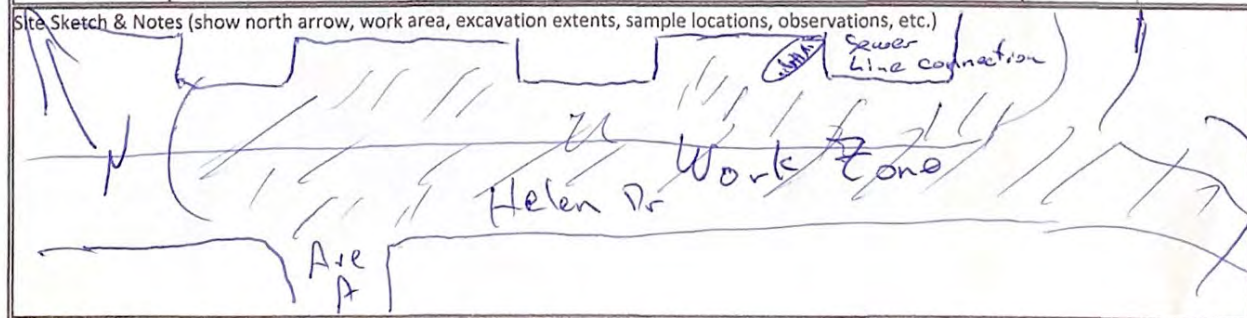 Site Sketch & Notes (show north arrow, work area, excavation extents, sample locations, observations, etc.)
Sewer
Line connection
N
Work Zone
Helen Dr
Ave
A